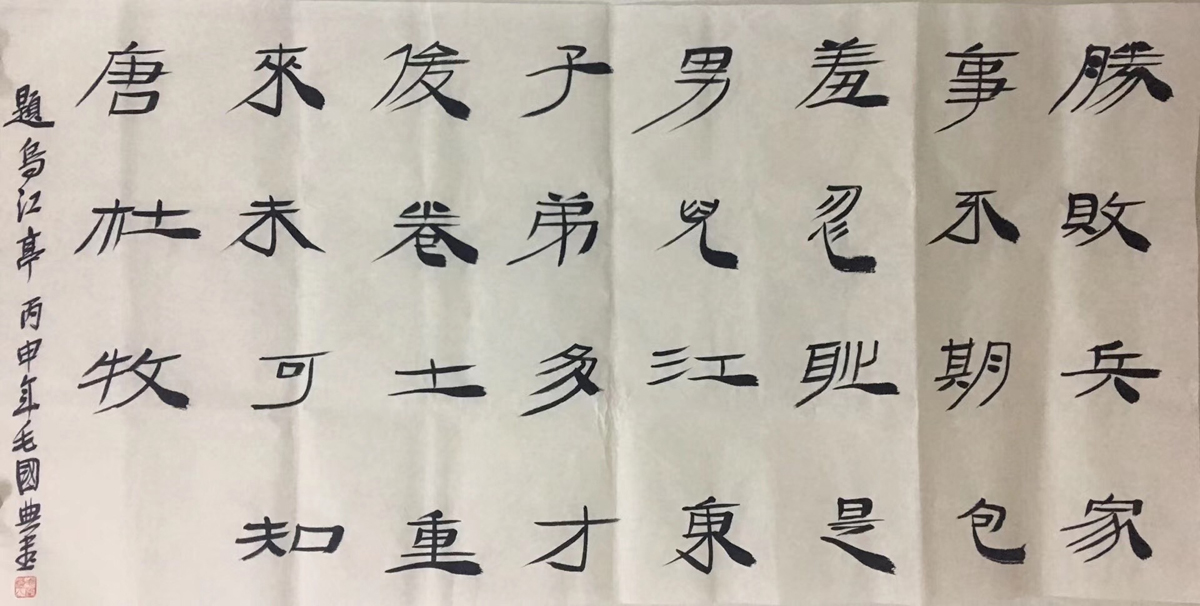 勝敗兵家
事不期包
羞忍耻是
男兒江東
子弟多才
俊卷土重
來未可知
唐杜牧
題烏江亭 丙申年毛國典書